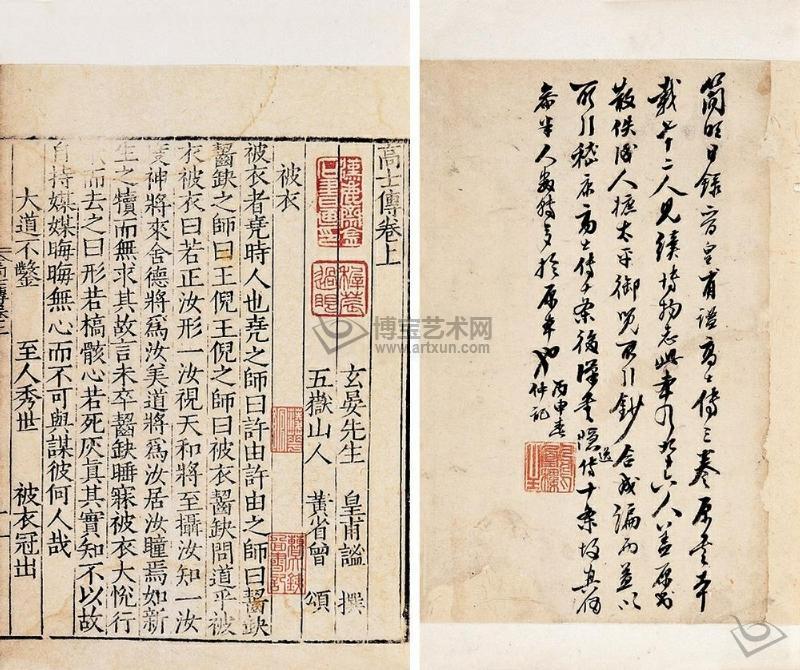 高士傳卷上
玄晏先生 皇甫謐 撰
五嶽山人 黃省曾 頌
被衣
被衣者堯時人也堯之師曰許由許由之師曰齧缺
齧缺之師曰王倪王倪之師曰被衣齧缺問道乎被
衣被衣曰若正汝形一汝視天和將至攝汝知一汝
度神將來舍德將爲汝美道將爲汝居汝瞳焉如新
生之犢而無求其故言未卒齧缺睡寐被衣大悅行
而去之曰形若槁骸心若死灰真其實知不以故
自持媒媒晦晦無心而不可與謀彼何人哉
大道不鑿 至人秀世 被衣冠出
簡明目錄晉皇甫謐高士傳三卷原書本
載七十二人見續博物志此本凡九十六人蓋原書
散佚後人摭太平御覽所引鈔合成編而益以
所引嵇康高士傳十条後漢書隱逸傳十条故真偽
參半人數轉多於原本也
丙申春
仲記
博宝艺术网
www.artxun.com